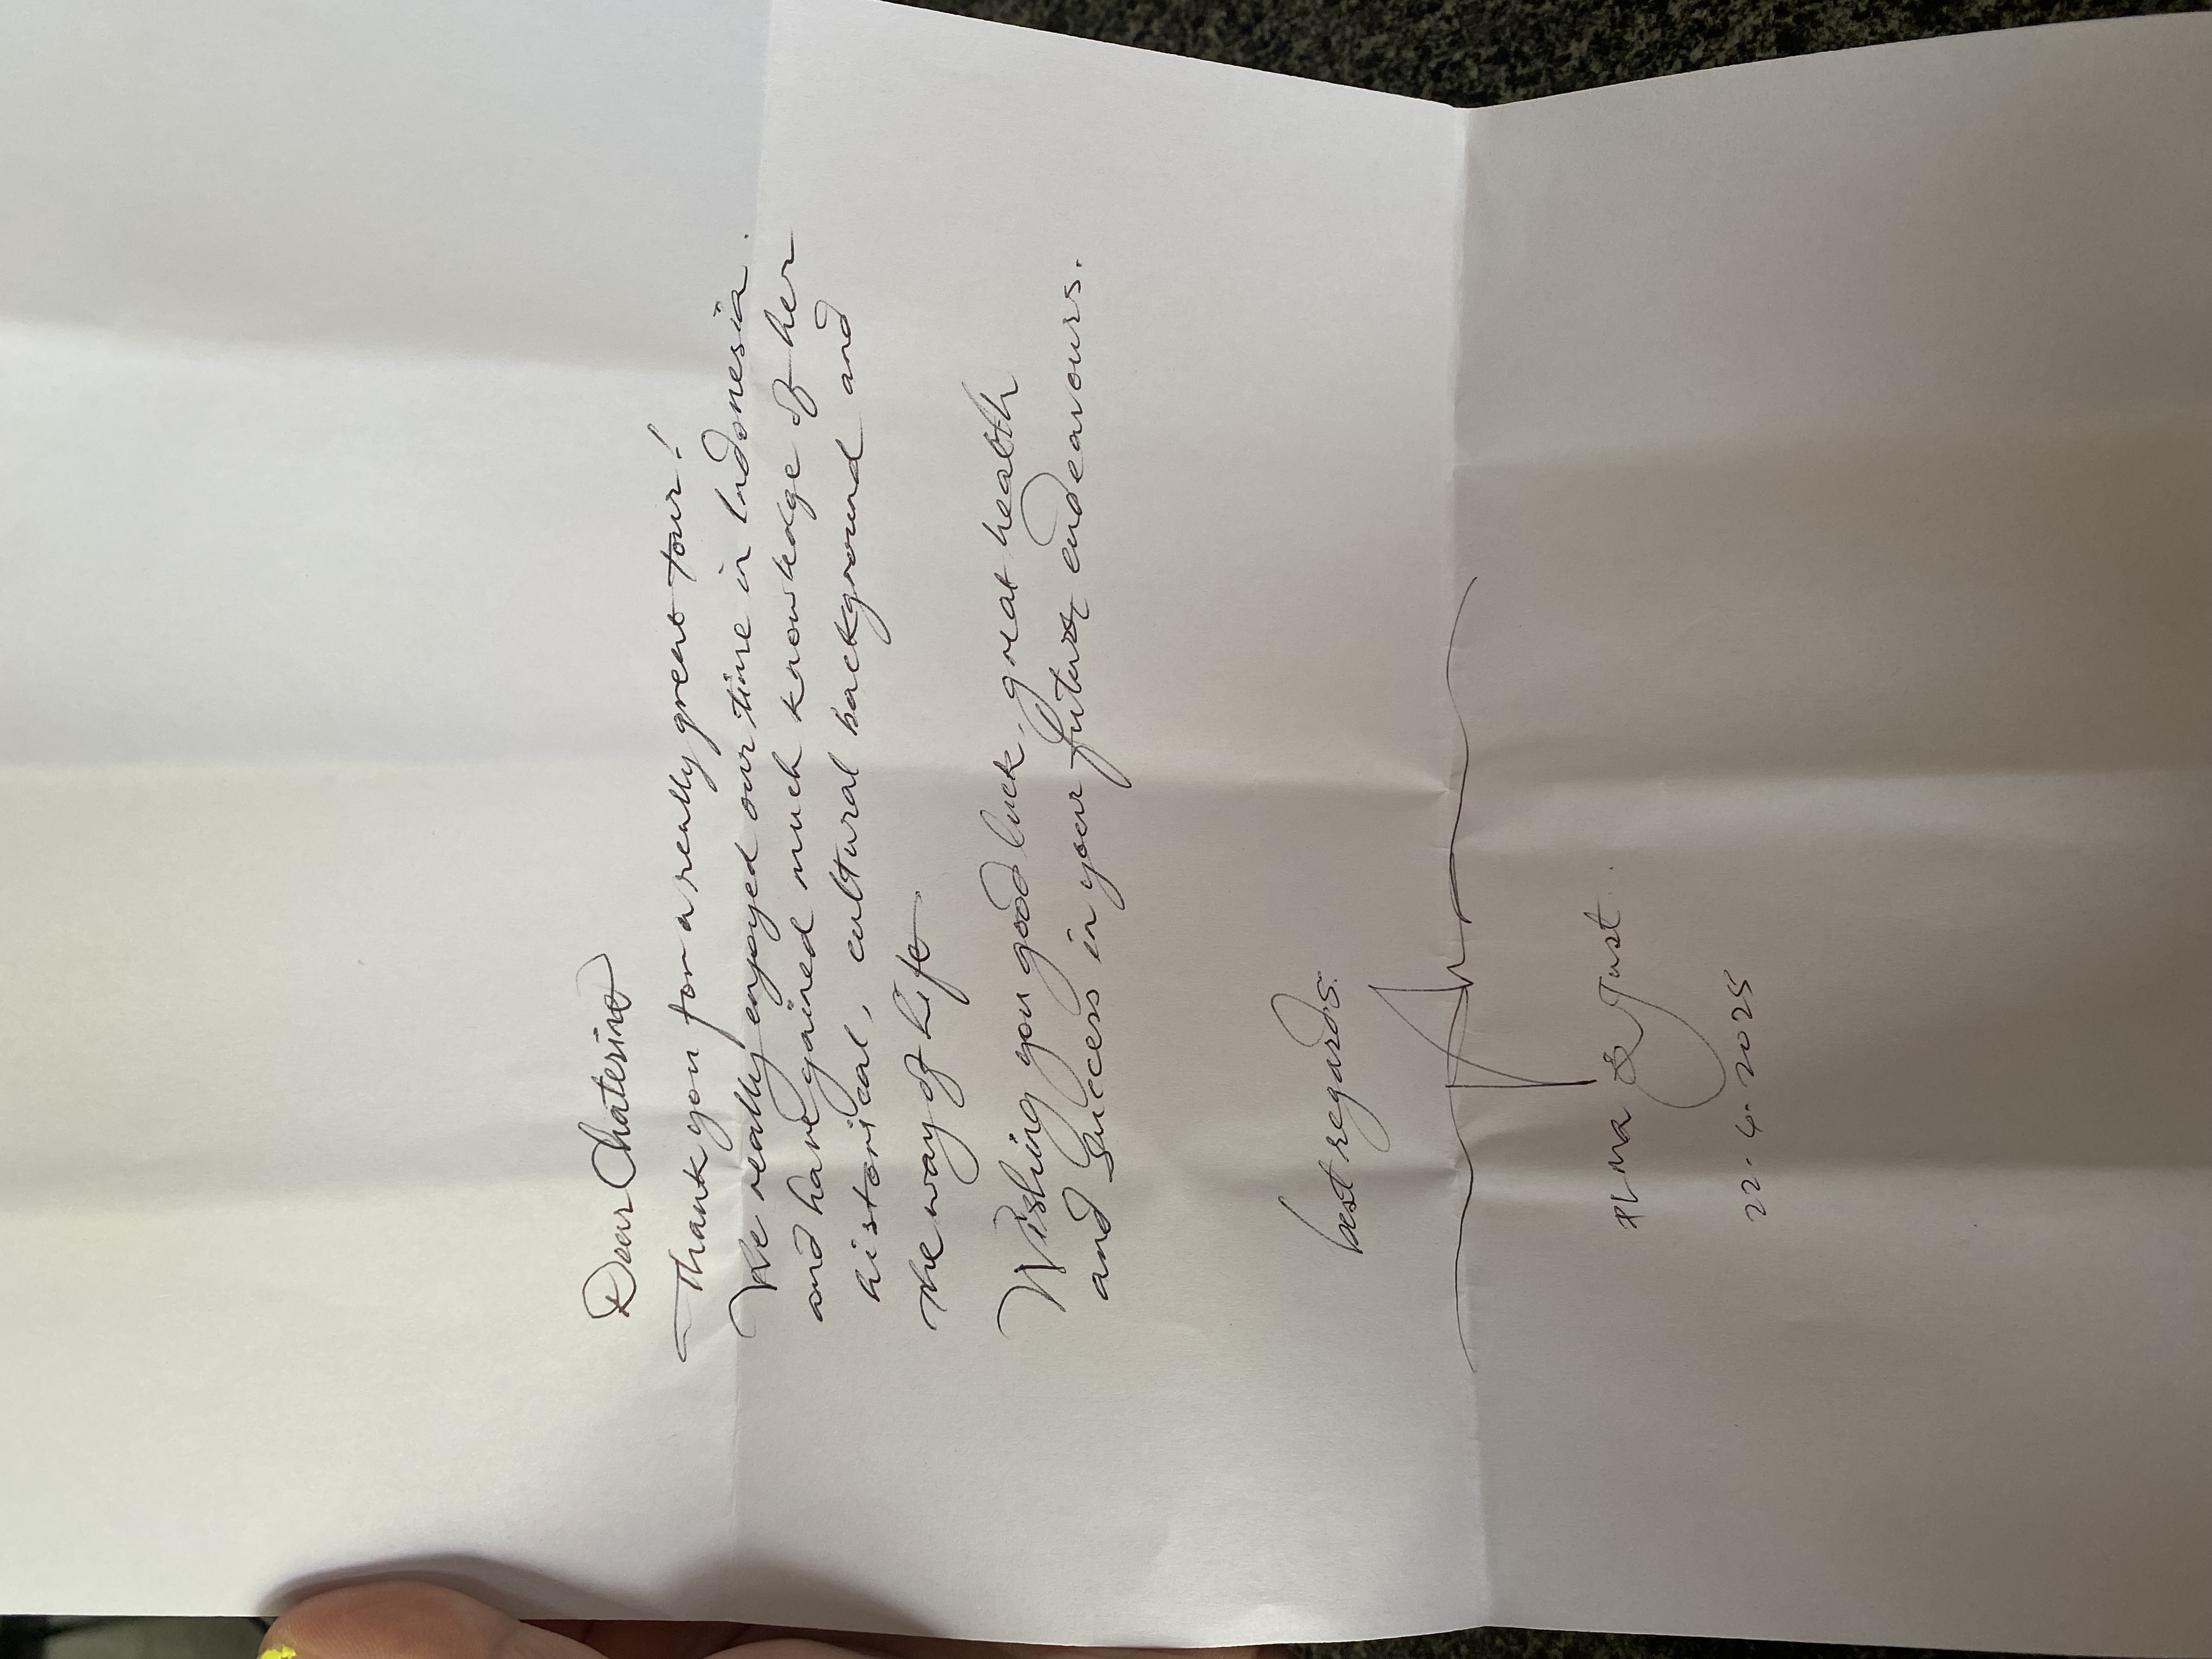 Dear Chaterine
Thank you for a really great tour!
We really enjoyed our time in Indonesia.
and have gained much knowledge of her
historical, cultural background and
the way of life
Wishing you good luck, great health
and success in your future endeavours.
best regards.
& Just.
22. 4. 2025